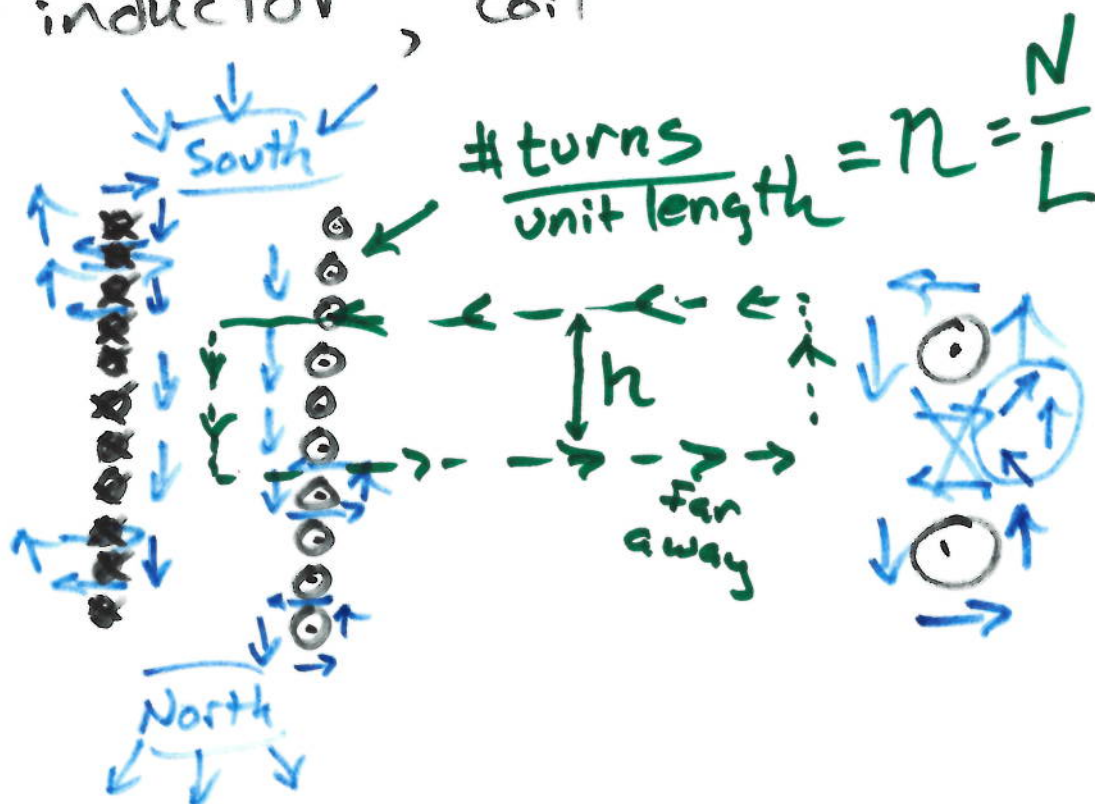 inductor, coil
South
# turns / unit length = n = N / L
h
far away
North